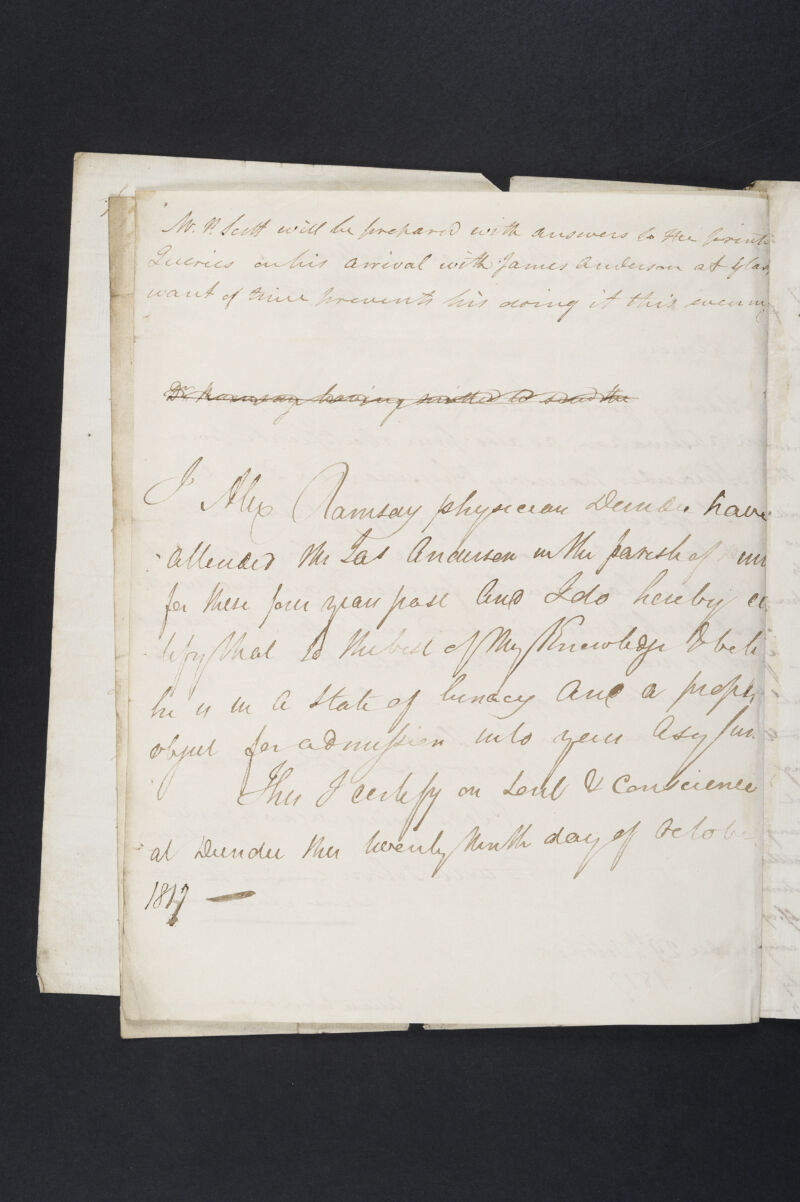 Mr. P Scott will be prepared with answers to the print
Queries on his arrival with James Anderson at Glas
want of time prevents his doing it this evening
Dr. Ramsay having omitted to send the
I Alex Ramsay physician Dundee have
attended Mr Jas Anderson in the parish of
for these four years past And I do hereby ce
tify that to the best of My Knowledge & beli
he is in a state of lunacy And a proper
object for admission into your Asylum
This I certify on Soul & Conscience
at Dundee this twenty Ninth day of Octobe
1817 —